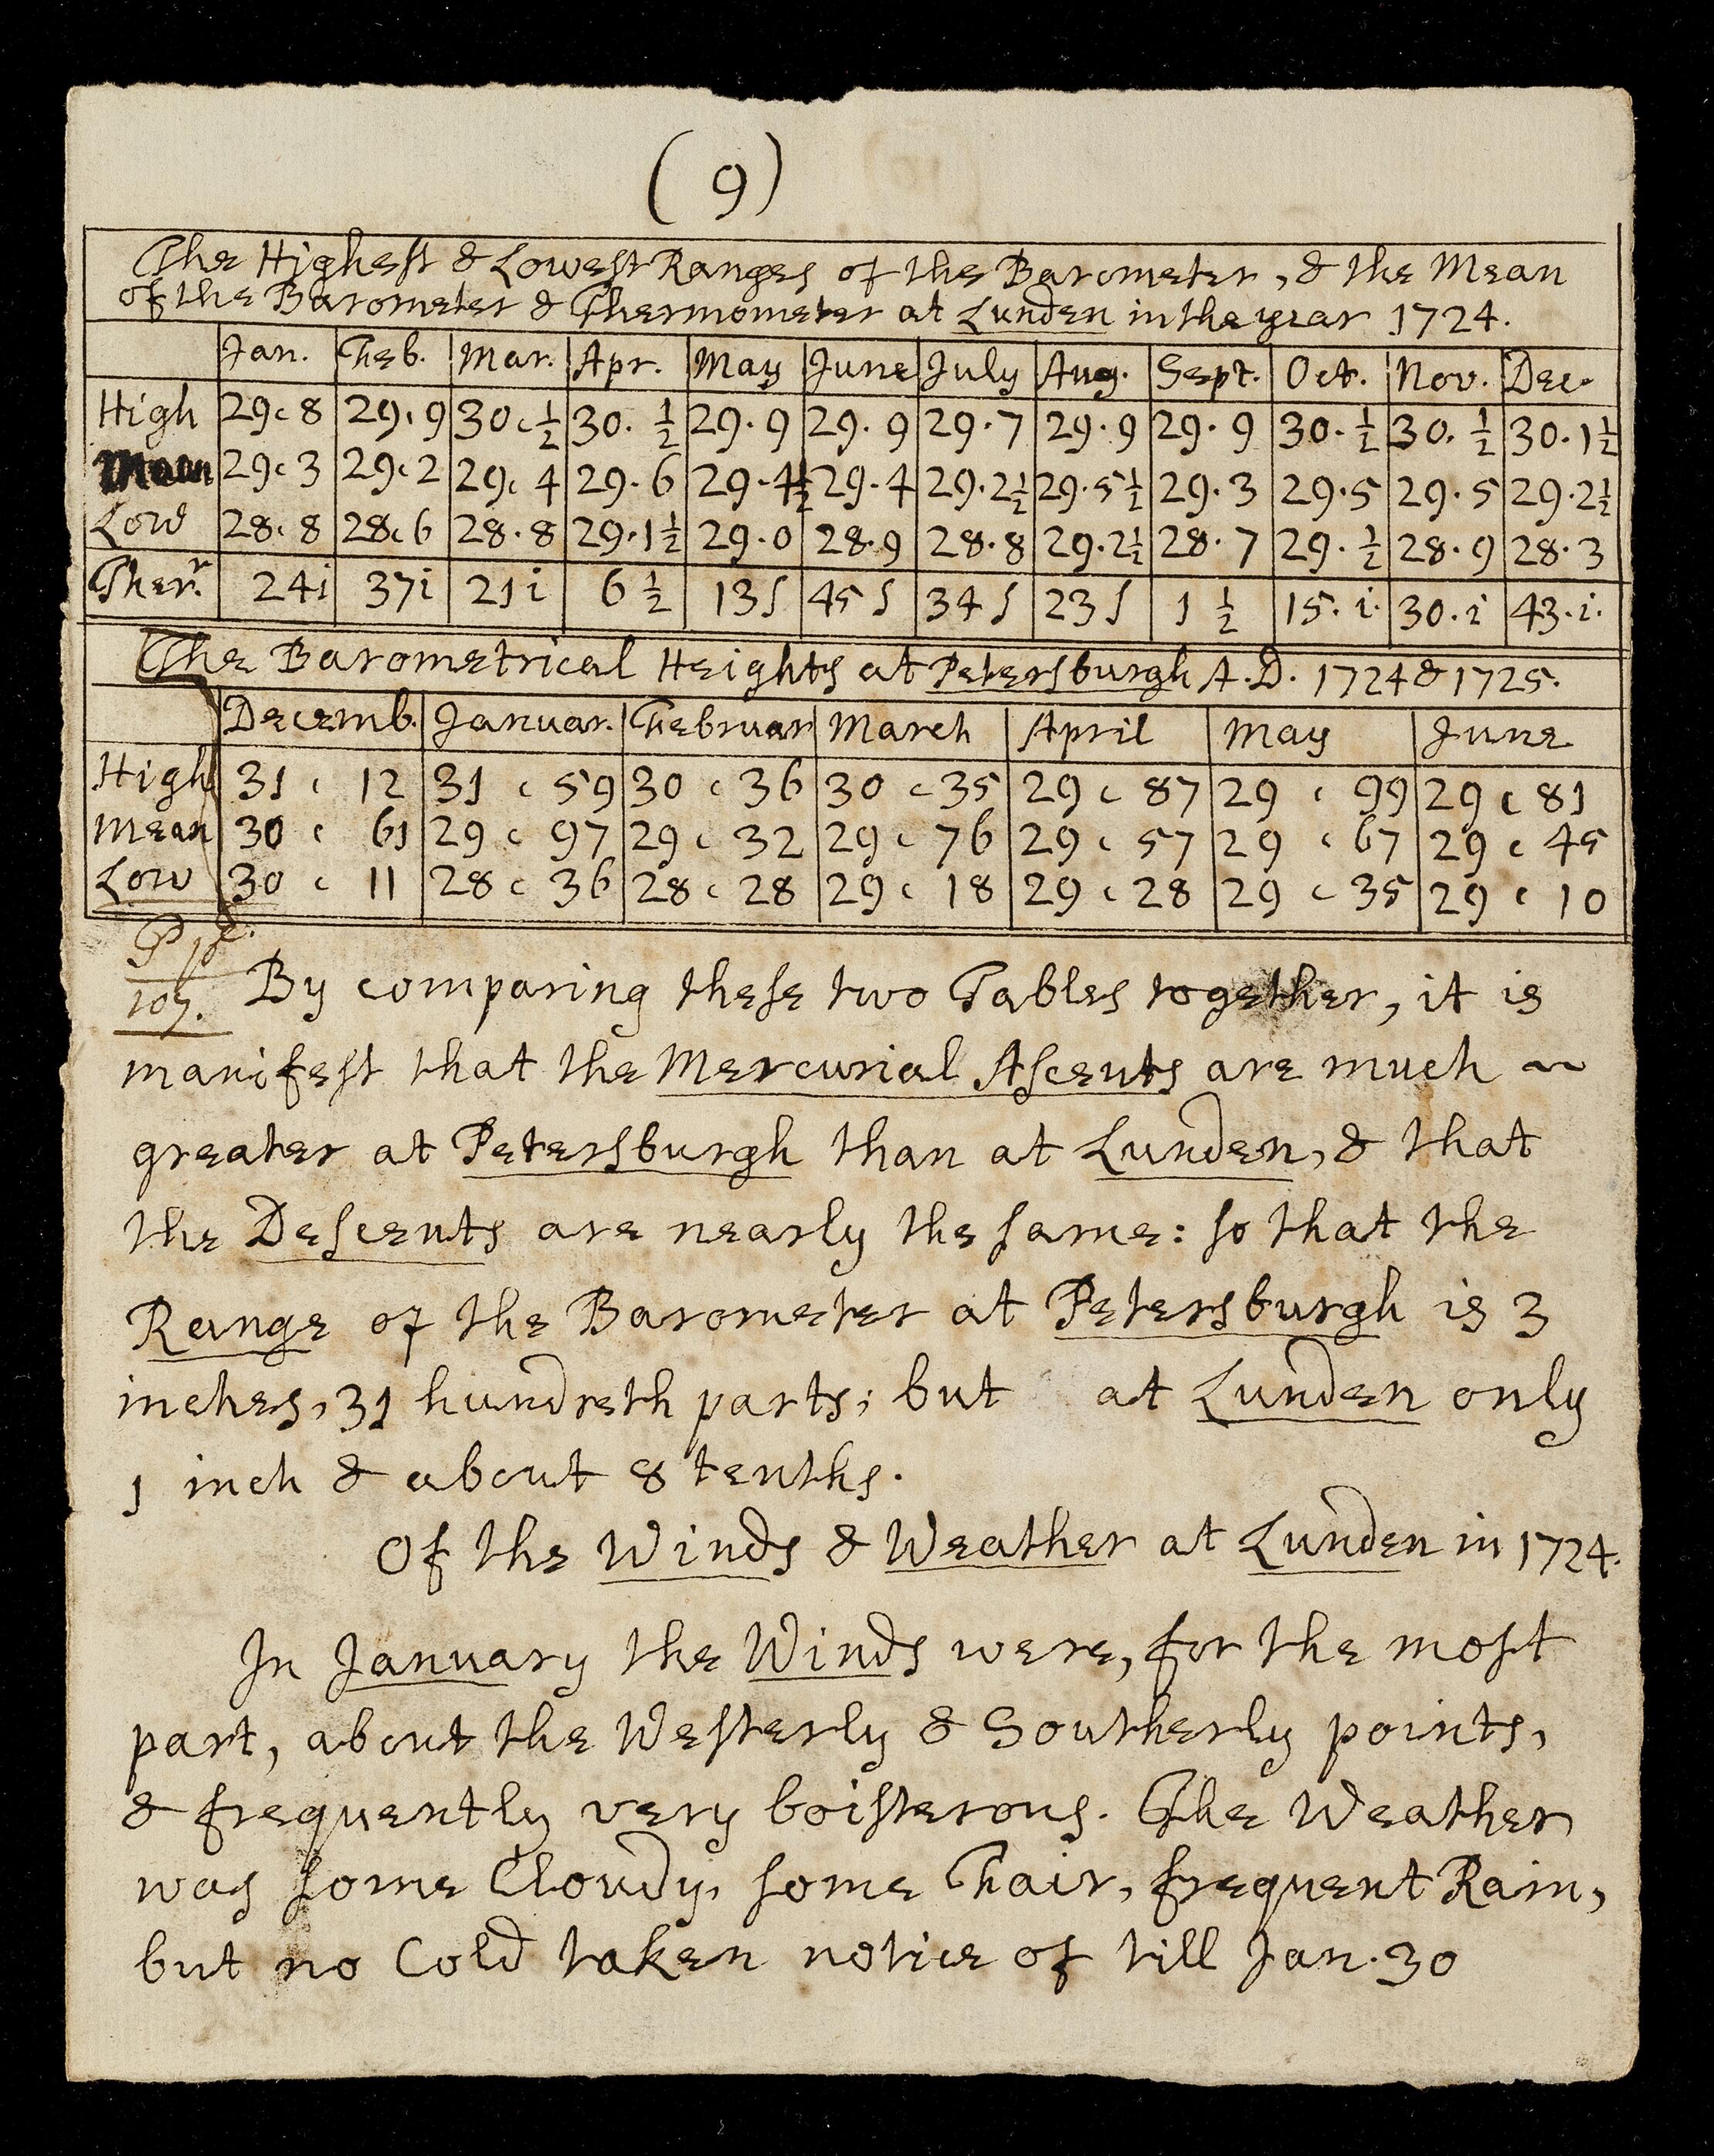 ( 9 )
The Highest & Lowest Ranges of the Barometer, & the Mean
of the Barometer & Thermometer at Lunden in the year 1724.
Jan. Feb. Mar. Apr. May June July Aug. Sept. Oct. Nov. Dec.
High 29.8 29.9 30.½ 30.½ 29.9 29.9 29.7 29.9 29.9 30.½ 30.½ 30.1½
Mean 29.3 29.2 29.4 29.6 29.4½ 29.4 29.2½ 29.5½ 29.3 29.5 29.5 29.2½
Low 28.8 28.6 28.8 29.1½ 29.0 28.9 28.8 29.2½ 28.7 29.½ 28.9 28.3
Ther.r 24i 37i 21i 6½ 13ſ 45ſ 34ſ 23ſ 1½ 15.i. 30.i 43.i.
The Barometrical Heights at Petersburgh A.D. 1724 & 1725.
Decemb. Januar. Februar March April May June
High 31 . 12 31 . 59 30 . 36 30 . 35 29 . 87 29 . 99 29 . 81
Mean 30 . 61 29 . 97 29 . 32 29 . 76 29 . 57 29 . 67 29 . 45
Low 30 . 11 28 . 36 28 . 28 29 . 18 29 . 28 29 . 35 29 . 10
107. By comparing theſe two Tables together, it is
manifeſt that the Mercurial Aſcents are much
greater at Petersburgh than at Lunden, & that
the Deſcents are nearly the ſame: ſo that the
Range of the Barometer at Petersburgh is 3
inches, 31 hundreth parts; but at Lunden only
1 inch & about 8 tenths.
Of the Winds & Weather at Lunden in 1724.
In January the Winds were, for the moſt
part, about the Weſterly & Southerly points,
& frequently very boiſterous. The Weather
was ſome Cloudy, ſome Fair, frequent Rain,
but no Cold taken notice of till Jan. 30